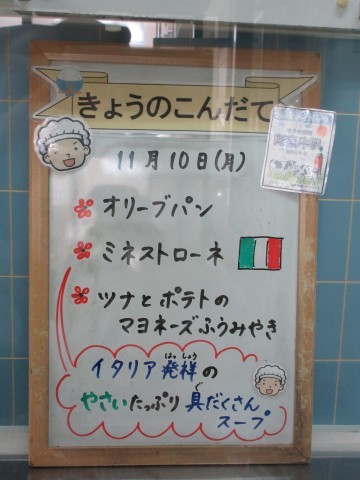 きょうのこんだて
11月10日(月)
オリーブパン
ミネストローネ
ツナとポテトの
マヨネーズふうみやき
イタリア発祥の
はっしょう
やさいたっぷり具だくさん
ぐ
スープ